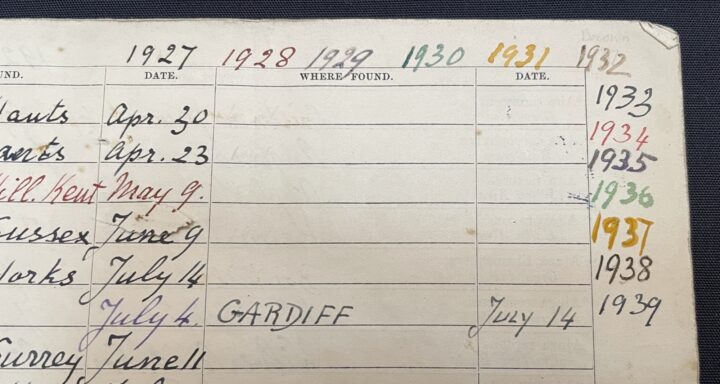 1927 1928 1929 1930 1931 1932
UND. DATE. WHERE FOUND. DATE.
1933
Hants Apr. 30
1934
ants Apr. 23
1935
Hill. Kent May 9.
1936
Sussex June 9
1937
Yorks July 14
1938
July 4. GARDIFF July 14
1939
Surrey June 11